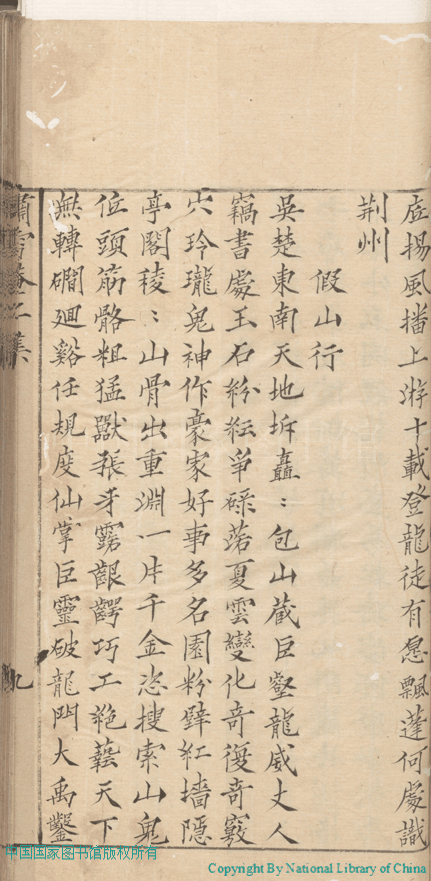 虛揚風播上游十載登龍徒有愿飄蓬何處識
荆州
假山行
吳楚東南天地坼矗〻包山藏巨壑龍威丈人
竊書處玉石紛紜爭磥落夏雲變化奇復奇竅
穴玲瓏鬼神作豪家好事多名園粉壁紅墻隱
亭閣稜〻山骨出重淵一片千金恣搜索山鬼
位頭筋骼粗猛獸張牙露齦齶巧工絶藝天下
無轉磵廻谿任規度仙掌巨靈破龍門大禹鑿
嘯雪菴二集
九
中国国家图书馆版权所有
Copyright By National Library of China